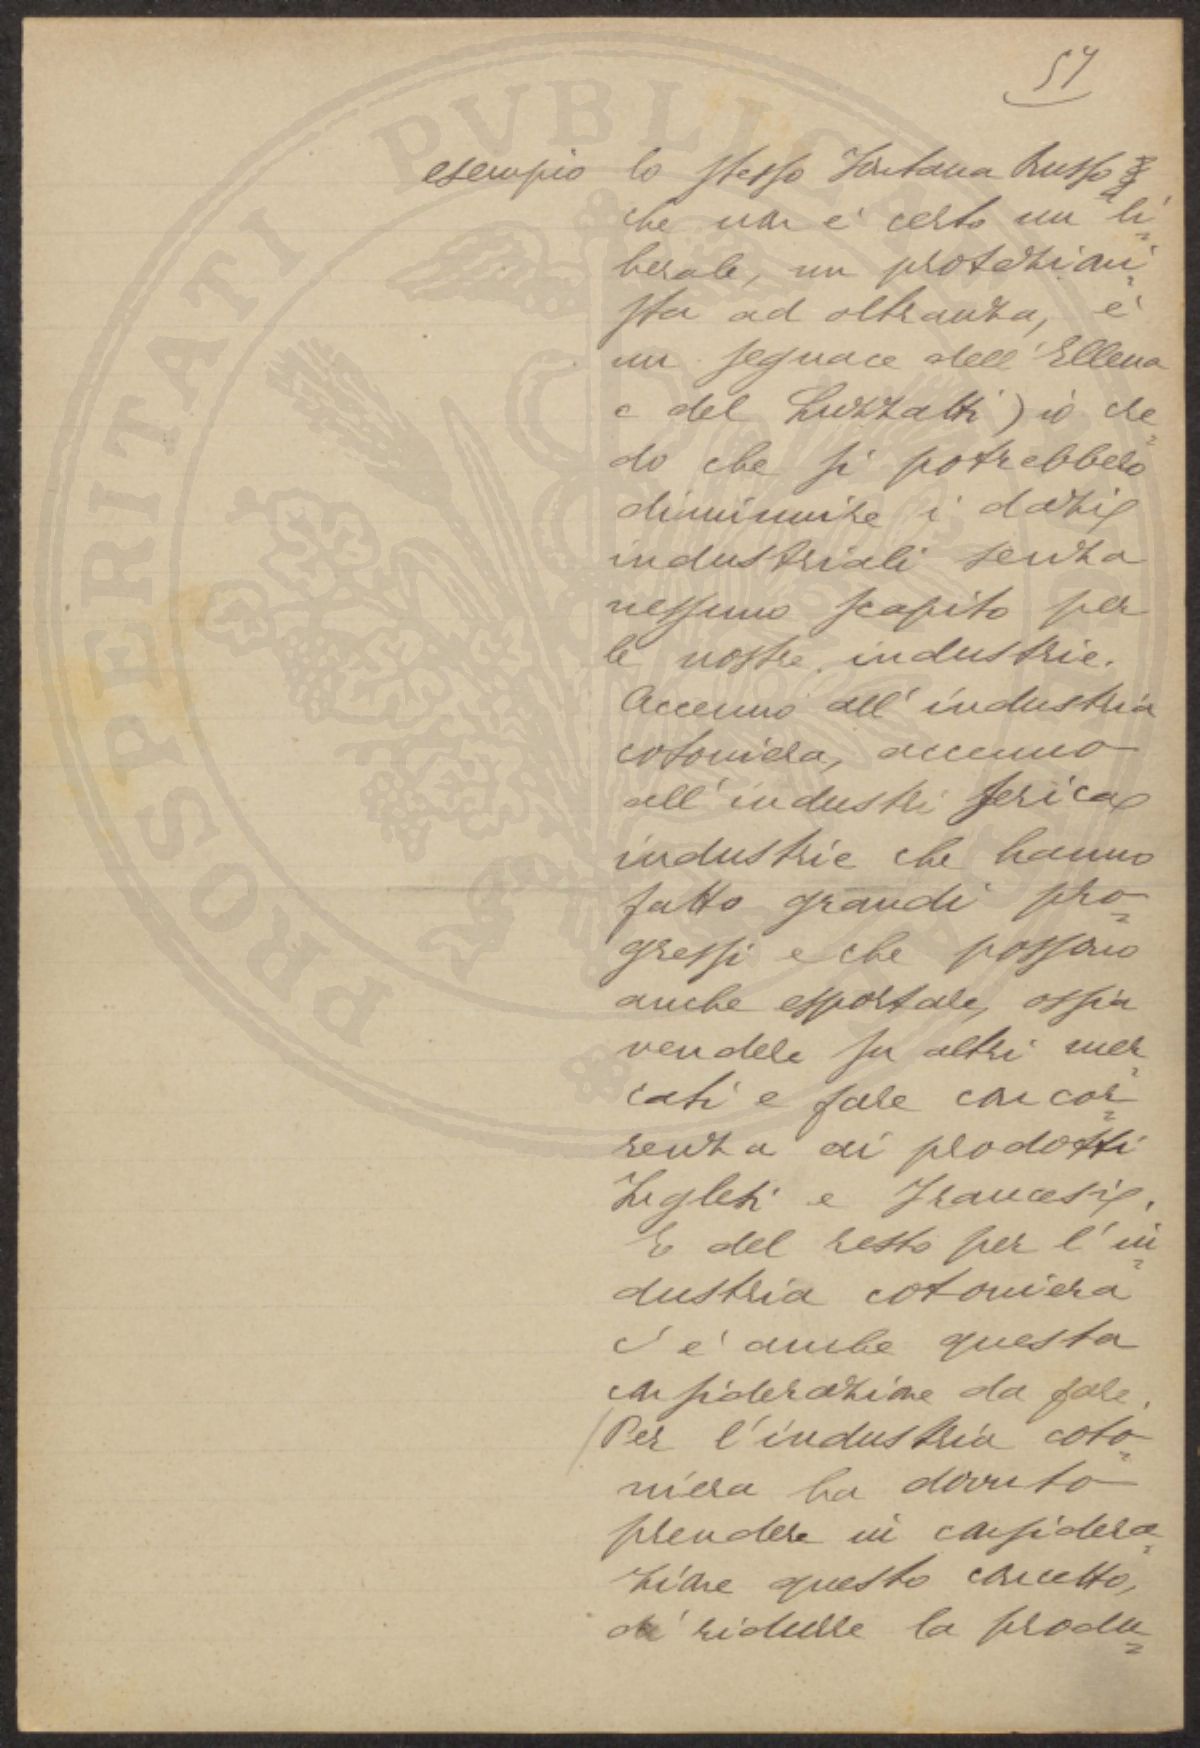 57
esempio lo stesso Fontana Russo
che non é certo un li=
berale, un protezioni=
sta ad oltranza, é
un seguace dell'Ellena
e del Luzzatti) io cre=
do che si potrebbero
diminuire i dazi
industriali senza
nessuno scapito per
le nostre industrie.
Accenno all'industria
cotoniera, accenno
all'industri serica
industrie che hanno
fatto grandi pro=
gressi e che possono
anche esportare, ossia
vendere su altri mer=
cati e fare concor=
renza ai prodotti
Inglesi e Francesi.
E del resto per l'in=
dustria cotoniera
c'é anche questa
considerazione da fare.
Per l'industria coto=
niera ha dovuto
prendere in considera=
zione questo concetto,
di ridurre la produ=
PROSPERITATI PVBLICAE